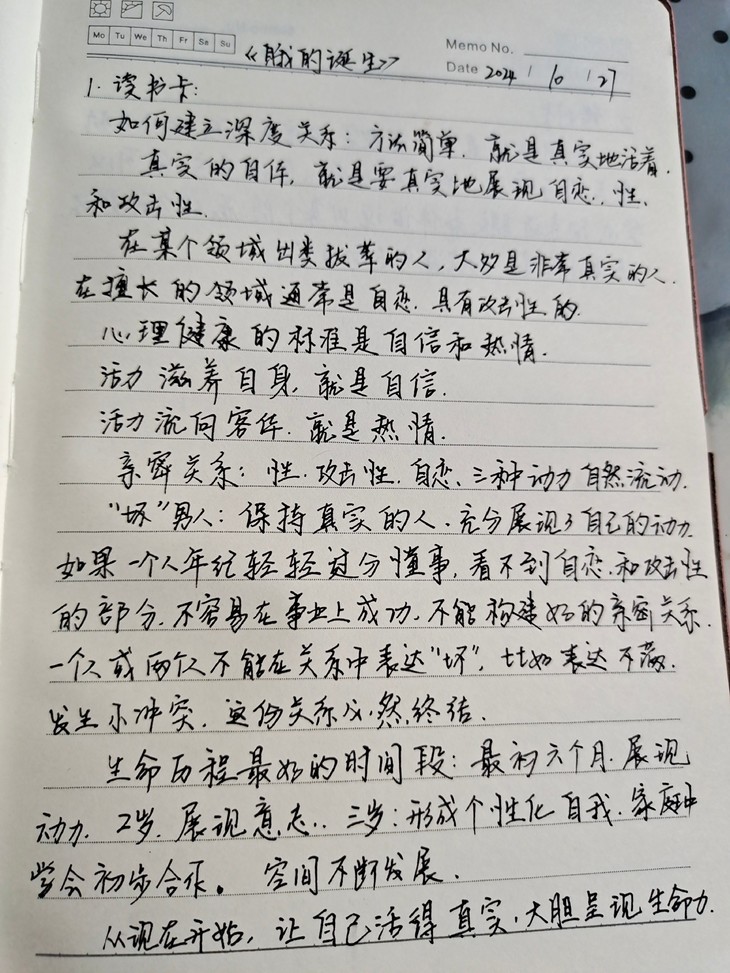 Mo Tu We Th Fr Sa Su
Memo No.
《我的诞生》
Date 2024 / 10 / 27
1. 读书卡:
如何建立深度关系: 方法简单. 就是真实地活着.
真实的自体, 就是要真实地展现自恋. 性.
和攻击性.
在某个领域出类拔萃的人, 大多是非常真实的人.
在擅长的领域通常是自恋. 具有攻击性的.
心理健康的标准是自信和热情.
活力滋养自身, 就是自信.
活力流向客体. 就是热情.
亲密关系: 性. 攻击性. 自恋、三种动力自然流动.
"坏"男人: 保持真实的人. 充分展现了自己的动力.
如果一个人年纪轻轻过分懂事, 看不到自恋. 和攻击性
的部分. 不容易在事业上成功. 不能构建好的亲密关系.
一个人或两个人不能在关系中表达"坏", 比如表达不满.
发生小冲突. 这份关系必然终结.
生命历程最好的时间段: 最初六个月. 展现
动力. 2岁. 展现意志.. 三岁: 形成个性化自我. 家庭中
学会初步合作。 空间不断发展.
从现在开始, 让自己活得真实. 大胆呈现生命力.